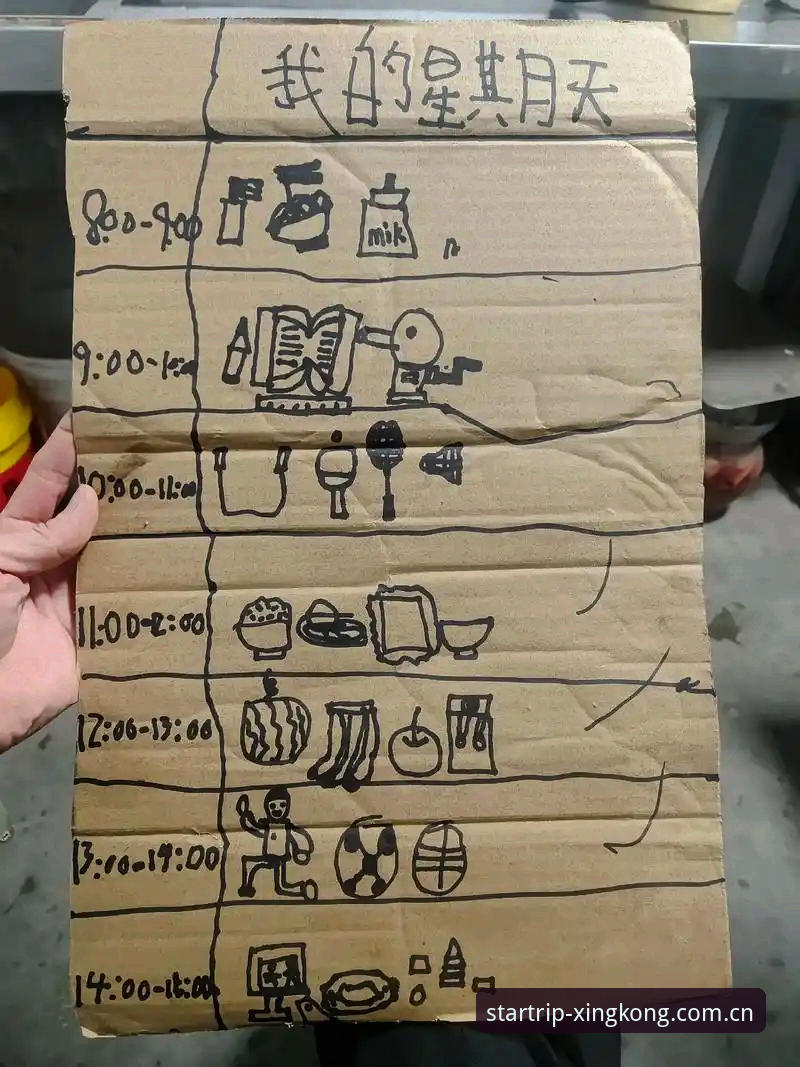 我的星期天
8:00-9:00
milk
9:00-10:00
10:00-11:00
11:00-12:00
12:00-13:00
13:00-14:00
14:00-15:00
startrip-xingkong.com.cn